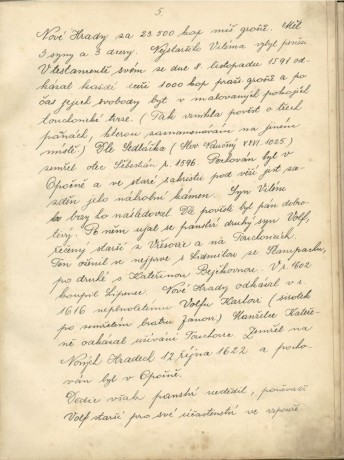 5.
Nové Hrady za 23 500 kop míš. grošů. Měl
3 syny a 3 dcery. Nejstaršího Viléma vybyl penězi.
V testamentě svém ze dne 8. listopadu 1591 od-
kázal každé ceři 1000 kop praž. grošů a po
čas jejich svobody byt v malovaných pokojích
tourkonské tvrze. (Tak vznikla pověst o třech
pannách, kterou zaznamenávám na jiném
místě.) Dle Sedláčka (Slov. Naučný XXVI. 1025)
zemřel otec Šebestián r. 1596. Pochován byl v
Opočně a ve staré sakristii pod věží jest za-
zděn jeho náhrobní kámen. Syn Vilém
brzy ho následoval. Dá pověst byl pán dobro-
Po něm ujal se panství druhý syn Volf,
řečený starší z Vřesovic a na Touchonicích.
Ten oženil se nejprve s Lidmilou ze Štampachu,
po druhé s Kateřinou Bezdružickou. V r. 1602
koupil Lipenec. Nové Hrady odkázal v r.
1616 nezletilému Volfu Karlovi (sirotek
po zemřelém bratru Janovi). Manželce Kateři-
ně odkázal užívání Touchovic. Zemřel na
Nových Hradech 12. října 1622 a pocho-
ván byl v Opočně.
Dědic však panství nezdědil, poněvadž
Volf starší pro své účastenství ve vzpouře